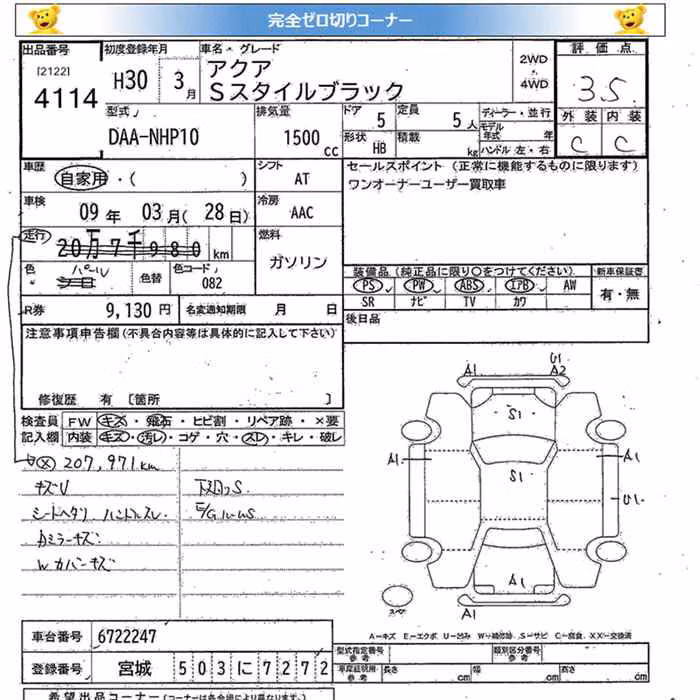 完全ゼロ切りコーナー
出品番号 初度登録年月 車名・グレード 評価点
[2122] 4114 H30 3月 アクア Sスタイルブラック 2WD・4WD 3.5
型式 排気量 ドア 定員 ディーラー・並行 外装 内装
DAA-NHP10 1500cc 5 5人 モデル年式 年 C C
形状 HB 積載 kg ハンドル 左・右
車歴 シフト セールスポイント (正常に機能するものに限ります)
自家用・( ) AT ワンオーナーユーザー買取車
車検 冷房
09年 03月(28日) AAC
走行 燃料
20万7千980 km ガソリン
色 パール 色替 色コード 082 装備品 (純正品に限り〇をつけてください) 新車保証書
PS PW ABS エアB AW 有・無
R券 9,130円 名変通知期限 月 日 SR ナビ TV カワ
注意事項申告欄(不具合内容等は具体的に記入して下さい) 後日品
修復歴 有 [箇所 ]
検査員 FW キズ・飛石・ヒビ割・リペア跡・×要
記入欄 内装 キズ・汚レ・コゲ・穴・スレ・キレ・破レ
207,971km
キズU 下廻っS.
シートヘタリ ハンドルスレ
ミラーキズ
Wカバーキズ
A1 U1 A2
S1
A1 S1 A1
U1
A1
A1
スペア
A=キズ E=エクボ U=凹み W=補修跡 S=サビ C=腐食 XX=交換済
車台番号 6722247 型式指定番号 参考 類別区分番号 参考
登録番号 宮城 503に7272 車庫証明用・参考 長さ cm 幅 cm 高さ cm
希望出品コーナー